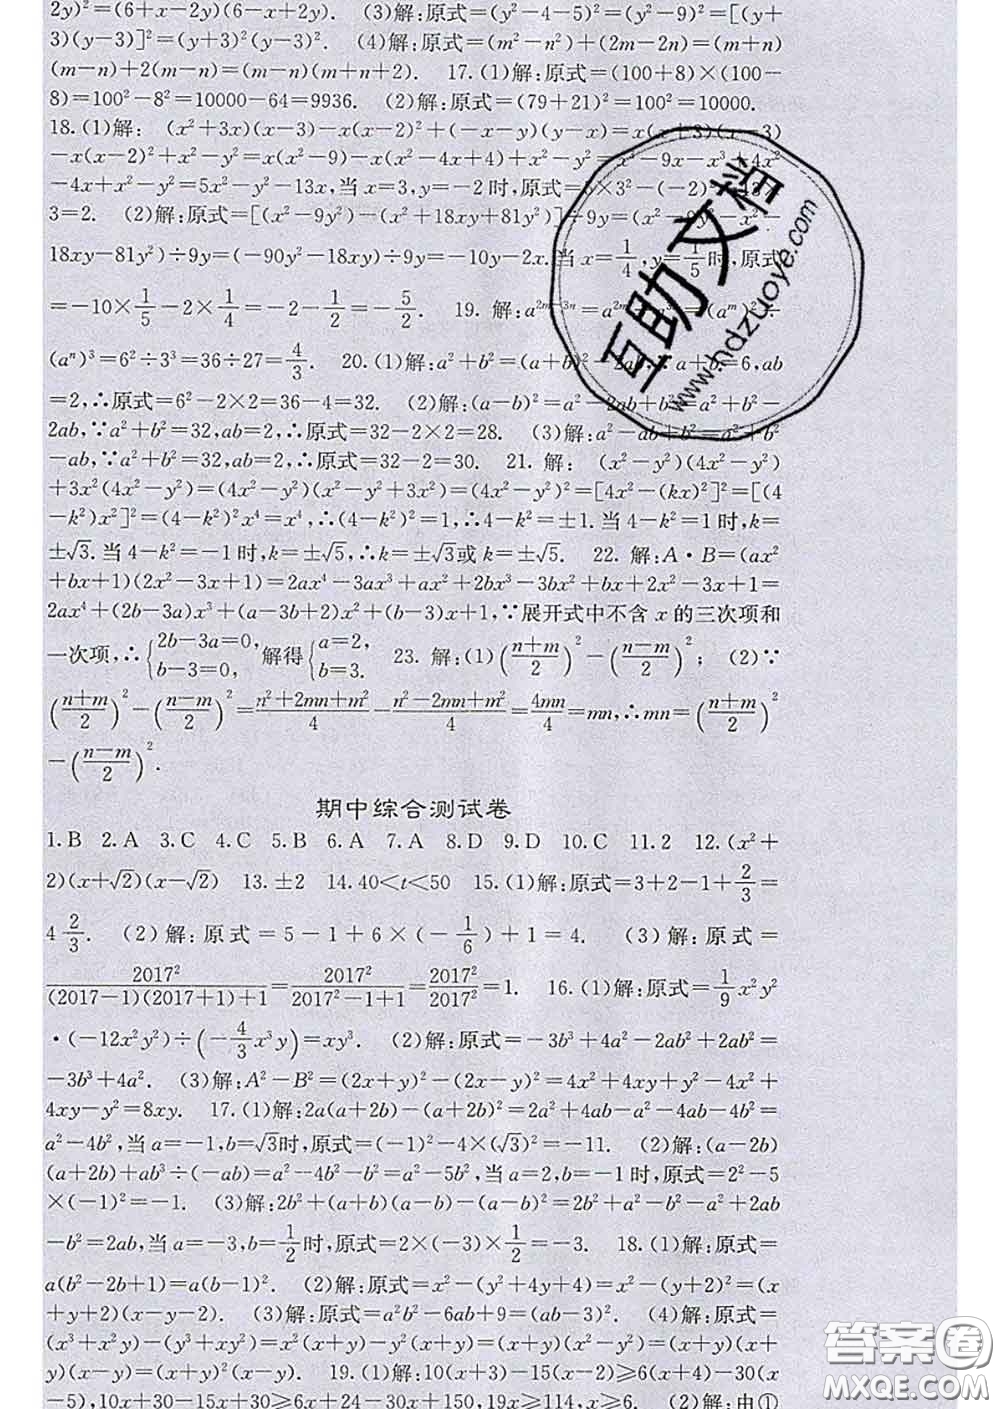 2y)²=(6+x-2y)(6-x+2y). (3)解:原式=(y²-4-5)²=(y²-9)²=[(y+
3)(y-3)]²=(y+3)²(y-3)². (4)解:原式=(m²-n²)+(2m-2n)=(m+n)
(m-n)+2(m-n)=(m-n)(m+n+2). 17.(1)解:原式=(100+8)×(100-
8)=100²-8²=10000-64=9936. (2)解:原式=(79+21)²=100²=10000.
18.(1)解: (x²+3x)(x-3)-x(x-2)²+(-x-y)(y-x)=x(x+3)(x-3)
-x(x-2)²+x²-y²=x(x²-9)-x(x²-4x+4)+x²-y²=x³-9x-x³+4x²
-4x+x²-y²=5x²-y²-13x,当x=3,y=-2时,原式=5×3²-(-2)²-13×
3=2. (2)解:原式=[(x²-9y²)-(x²+18xy+81y²)]÷9y=(x²-9y²-x²-
18xy-81y²)÷9y=(-90y²-18xy)÷9y=-10y-2x.当x=1/4,y=1/5时,原式
=-10×1/5-2×1/4=-2-1/2=-5/2. 19. 解:a²ᵐ⁻³ⁿ=a²ᵐ (aᵐ)²÷
(aⁿ)³=6²÷3³=36÷27=4/3. 20.(1)解:a²+b²=(a+b)²-2ab, a+b=6,ab
=2,∴原式=6²-2×2=36-4=32. (2)解:(a-b)²=a²-2ab+b²=a²+b²-
2ab,∵a²+b²=32,ab=2,∴原式=32-2×2=28. (3)解:a²-ab+b²=a²+b²
-ab,∵a²+b²=32,ab=2,∴原式=32-2=30. 21. 解: (x²-y²)(4x²-y²)
+3x²(4x²-y²)=(4x²-y²)(x²-y²+3x²)=(4x²-y²)²=[4x²-(kx)²]²=[(4
-k²)x²]²=(4-k²)²x⁴=x⁴,∴(4-k²)²=1,∴4-k²=±1.当4-k²=1时,k=
±√3.当4-k²=-1时,k=±√5,∴k=±√3或k=±√5. 22. 解:A·B=(ax²
+bx+1)(2x²-3x+1)=2ax⁴-3ax³+ax²+2bx³-3bx²+bx+2x²-3x+1=
2ax⁴+(2b-3a)x³+(a-3b+2)x²+(b-3)x+1,∵展开式中不含x的三次项和
一次项,∴{2b-3a=0, b-3=0, 解得{a=2, b=3. 23. 解:(1)((n+m)/2)²-((n-m)/2)²; (2)∵
((n+m)/2)²-((n-m)/2)²=(n²+2mn+m²)/4-(n²-2mn+m²)/4=4mn/4=mn,∴mn=((n+m)/2)²
-((n-m)/2)².
期中综合测试卷
1.B 2.A 3.C 4.C 5.B 6.A 7.A 8.D 9.D 10.C 11.2 12.(x²+
2)(x+√2)(x-√2) 13.±2 14.40<t<50 15.(1)解:原式=3+2-1+2/3=
4 2/3. (2)解:原式=5-1+6×(-1/6)+1=4. (3)解:原式=
2017²/((2017-1)(2017+1)+1)=2017²/(2017²-1+1)=2017²/2017²=1. 16.(1)解:原式=1/9x²y²
·(-12x²y²)÷(-4/3x³y)=xy³. (2)解:原式=-3b³+4a²-2ab²+2ab²=
-3b³+4a². (3)解:A²-B²=(2x+y)²-(2x-y)²=4x²+4xy+y²-4x²+
4xy-y²=8xy. 17.(1)解:2a(a+2b)-(a+2b)²=2a²+4ab-a²-4ab-4b²=
a²-4b²,当a=-1,b=√3时,原式=(-1)²-4×(√3)²=-11. (2)解:(a-2b)
(a+2b)+ab³÷(-ab)=a²-4b²-b²=a²-5b²,当a=2,b=-1时,原式=2²-5
×(-1)²=-1. (3)解:2b²+(a+b)(a-b)-(a-b)²=2b²+a²-b²-a²+2ab
-b²=2ab,当a=-3,b=1/2时,原式=2×(-3)×1/2=-3. 18.(1)解:原式=
a(b²-2b+1)=a(b-1)². (2)解:原式=x²-(y²+4y+4)=x²-(y+2)²=(x
+y+2)(x-y-2). (3)解:原式=a²b²-6ab+9=(ab-3)². (4)解:原式=
(x³+x²y)-(y³+xy²)=x²(x+y)-y²(x+y)=(x+y)(x²-y²)=(x+y)(x+
y)(x-y)=(x+y)²(x-y). 19.(1)解:10(x+3)-15(x-2)≥6(x+4)-30(x
-5),10x+30-15x+30≥6x+24-30x+150,19x≥114,x≥6. (2)解:由①
互助文档
www.hdzuoye.com
答案圈
MXQE.COM